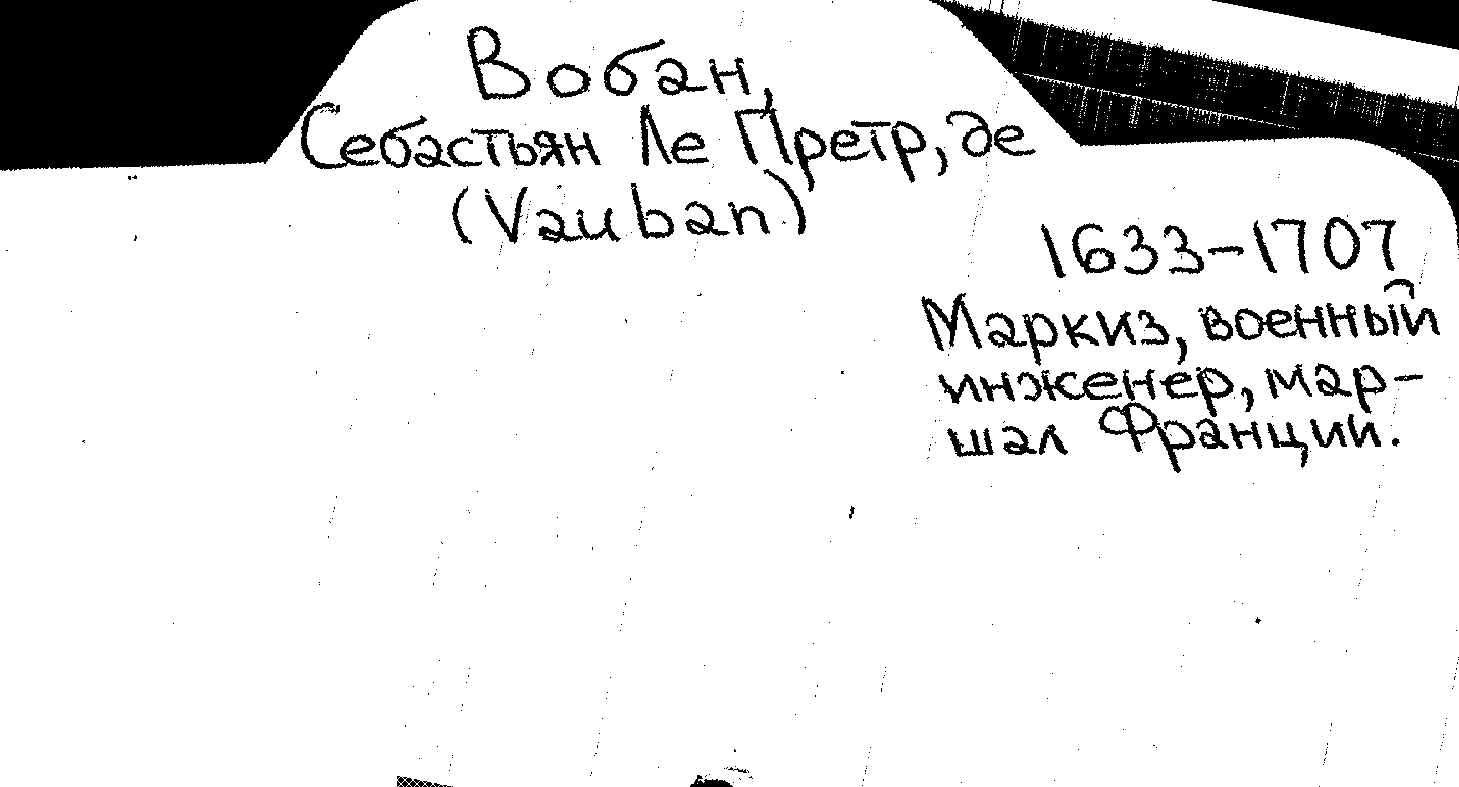 Вобан,
Себастьян Ле Претр, де
(Vauban)
1633-1707
Маркиз, военный
инженер, мар-
шал Франции.